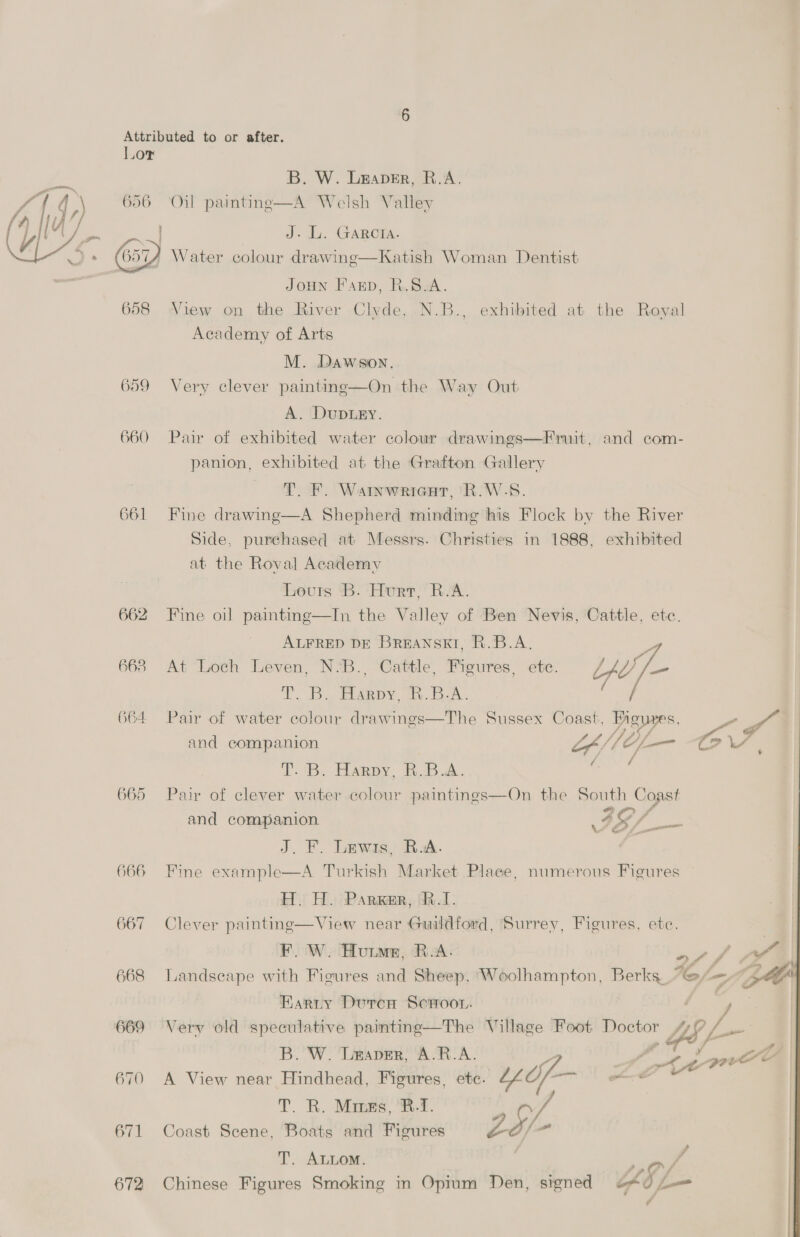 6
Attributed to or after.
Lot
B. W. Leader, R.A.
656 Oil painting—A Welsh Valley
J. L. Garcia.
657 Water colour drawing—Katish Woman Dentist
John Faed, R.S.A.
658 View on the River Clyde, N.B., exhibited at the Royal
Academy of Arts
M. Dawson.
659 Very clever painting—On the Way Out
A. Dudley.
660 Pair of exhibited water colour drawings—Fruit, and com-
panion, exhibited at the Grafton Gallery
T. F. Wainwright, R.W.S.
661 Fine drawing—A Shepherd minding his Flock by the River
Side, purchased at Messrs. Christies in 1888, exhibited
at the Royal Academy
Louis B. Hurt, R.A.
662 Fine oil painting—In the Valley of Ben Nevis, Cattle, etc.
Alfred de Breanski, R.B.A.
663 At Loch Leven, N.B., Cattle, Figures, etc.
T. B. Hardy, R.B.A.
664 Pair of water colour drawings—The Sussex Coast, Figures,
and companion
T. B. Hardy, R.B.A.
665 Pair of clever water colour paintings—On the South Coast
and companion
J. F. Lewis, R.A.
666 Fine example—A Turkish Market Place, numerous Figures
H. H. Parker, R.I.
667 Clever painting—View near Guildford, Surrey, Figures, etc.
F. W. Hulme, R.A.
668 Landscape with Figures and Sheep, Woolhampton, Berks
Early Dutch School.
669 Very old speculative painting—The Village Foot Doctor
B. W. Leader, A.R.A.
670 A View near Hindhead, Figures, etc.
T. R. Miles, R.I.
671 Coast Scene, Boats and Figures
T. Allom.
672 Chinese Figures Smoking in Opium Den, signed